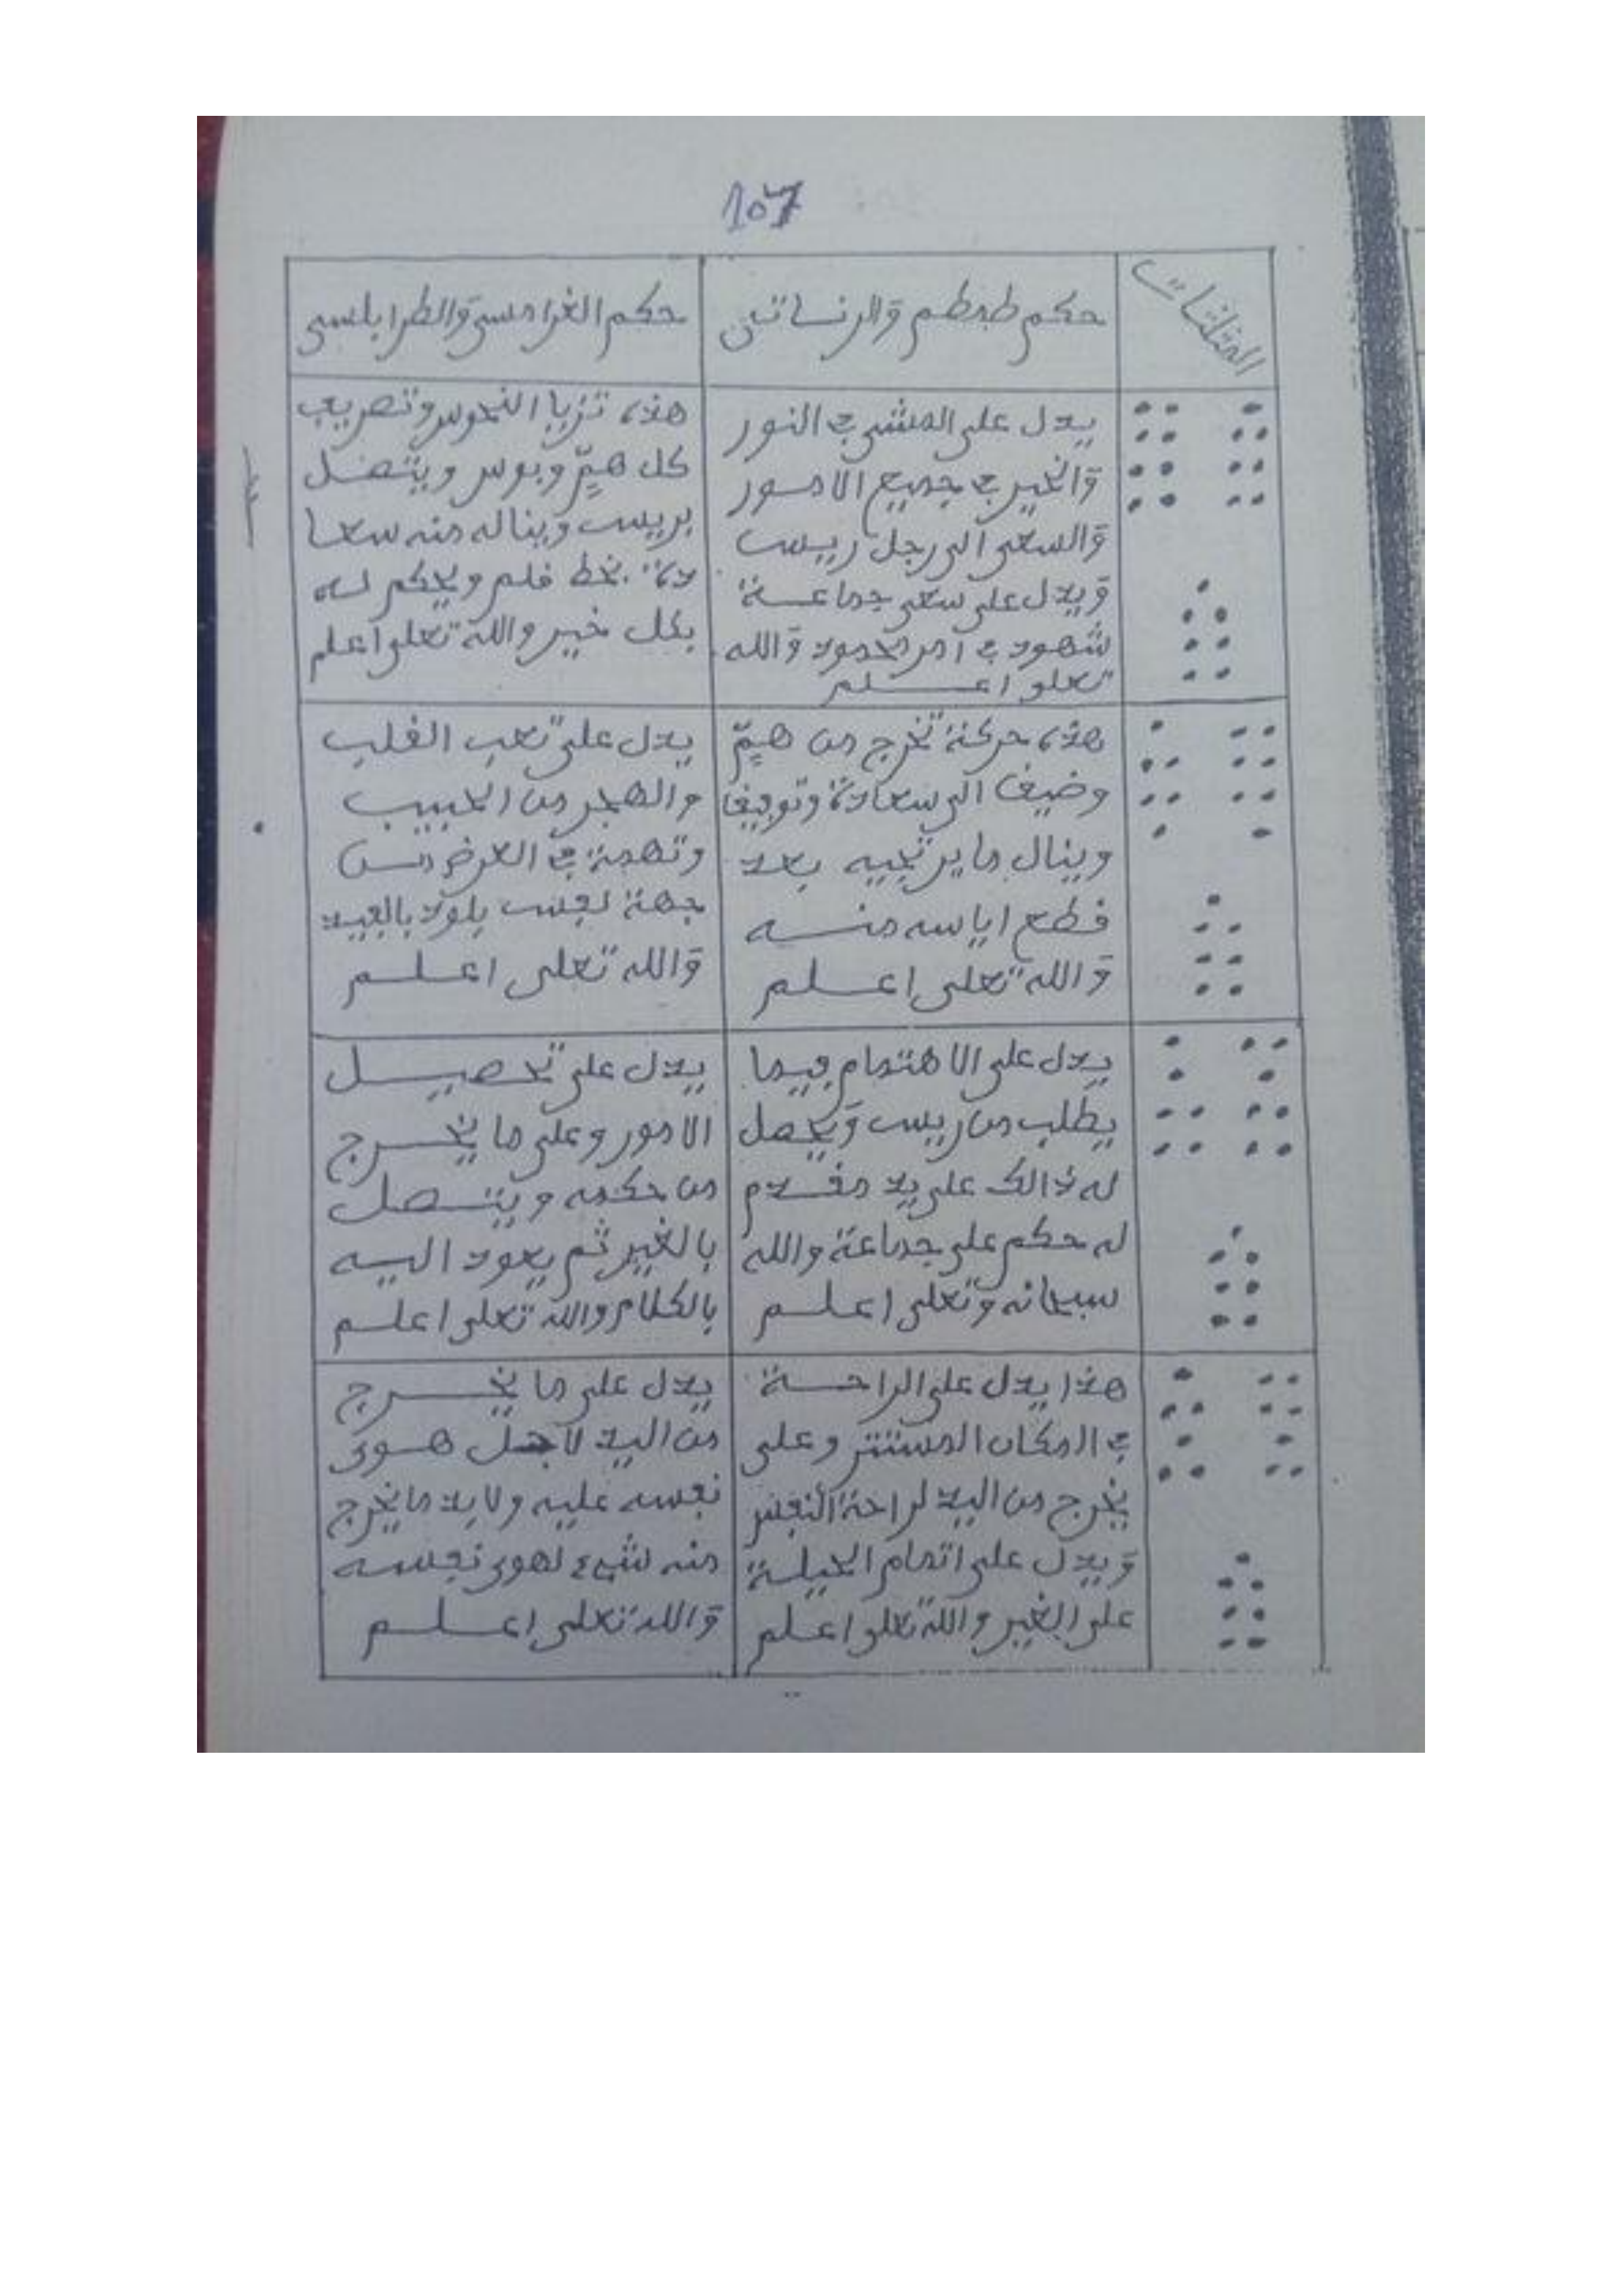 107
المثلثات
حكم طمطم والزناتي
حكم الغدامسي والطرابلسي
يدل على المشي في النور
والخير في جميع الامور
والسعي الى رجل رييس
ويدل على سعي جماعة
شهود في امر محمود والله
تعلى اعلم
هذه تزيا النحوس وتصريف
كل هم وبوس ويتصل
برييس ويناله منه سعا
دة بخط قلم ويحكم له
بكل خير والله تعلى اعلم
هذه حركة تخرج من هم
وضيق الى سعادة وتوفيق
وينال ما يرتجيه بعد
قطع اياسه منه
والله تعلى اعلم
يدل على تعب القلب
والهجر من الحبيب
وتهمة في العرض من
جهة
والله تعلى اعلم
يدل على الاهتمام فيما
يطلب من رييس ويحصل
له ذالك على يد مقدم
له حكم على جماعة والله
سبحانه وتعلى اعلم
يدل على تحصيل
الامور وعلى ما يخرج
من حكمه ويتصل
بالغير ثم يعود اليه
بالكلام والله تعلى اعلم
هذا يدل على الراحة
في المكان المستتر وعلى
يخرج من اليد لراحة النفس
ويدل على اتمام الحيلة
على الغير والله تعلى اعلم
يدل على ما يخرج
من اليد لاجل هوى
نفسه عليه ولا بد ما يخرج
منه شيء لهوى نفسه
والله تعلى اعلم